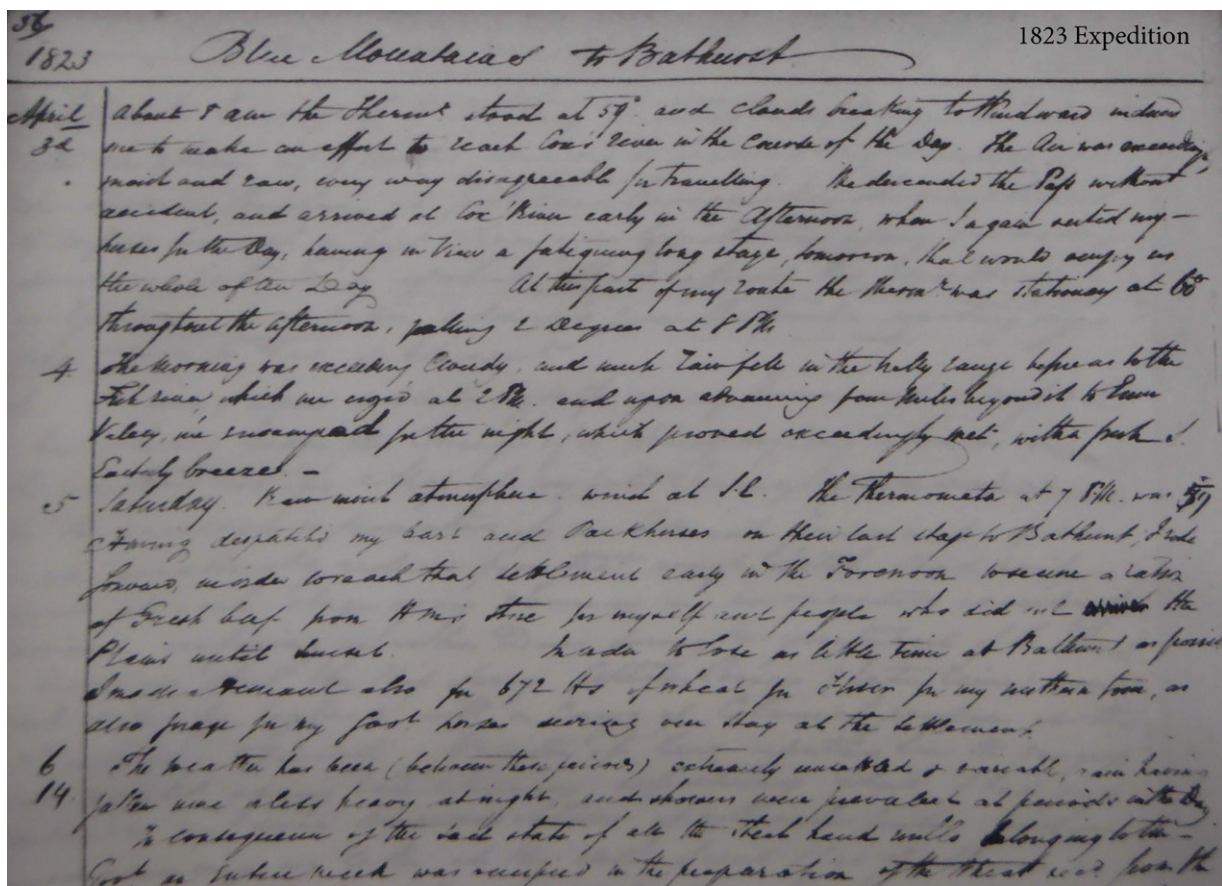 56
1823 Blue Mountains to Bathurst
1823 Expedition
April 3d About 8 am the Thermr stood at 59° and clouds breaking to Windward induced
me to make an effort to reach Cox's River in the course of the Day. The Air was exceedingly
moist and raw, every way disagreeable for travelling. We descended the Pass without
accident, and arrived at Cox' River early in the Afternoon, when I again rested my
horses for the Day, having in View a fatiguing long stage, tomorrow, that would occupy us
the whole of the Day At this part of my route the Thermr was stationary at 60°
throughout the afternoon, falling 2 Degrees at 8 PM.
4 The Morning was exceeding Cloudy, and much rain fell in the hilly range before us to the
Fish river which we cross'd at 2 PM. and upon advancing four Miles beyond it to
Valley, we encamped for the night, which proved exceedingly wet, with a fresh S.
Easterly breeze. —
5 Saturday. Raw moist atmosphere. wind at S.E. The Thermometer at 7 PM. was
Having despatched my Cart and Packhorses on their last stage to Bathurst, I rode
forward, in order to reach that settlement early in the Forenoon to secure a ration
of Fresh beef from H M's store for myself and people who did not the
Plains until sunset. In order to lose as little time at Bathurst as
I made a demand also for 672 lbs of wheat for for my northern tour, as
also forage for my Govt horses during our stay at the settlement.
6
14 The weather has been (between these periods) extremely unsettled & variable, rain having
fallen more or less heavy at night, and showers were prevalent at periods in the Day
In consequence of the bad state of all the steel hand mills belonging to the —
Govt an entire week was occupied in the preparation of the wheat from the